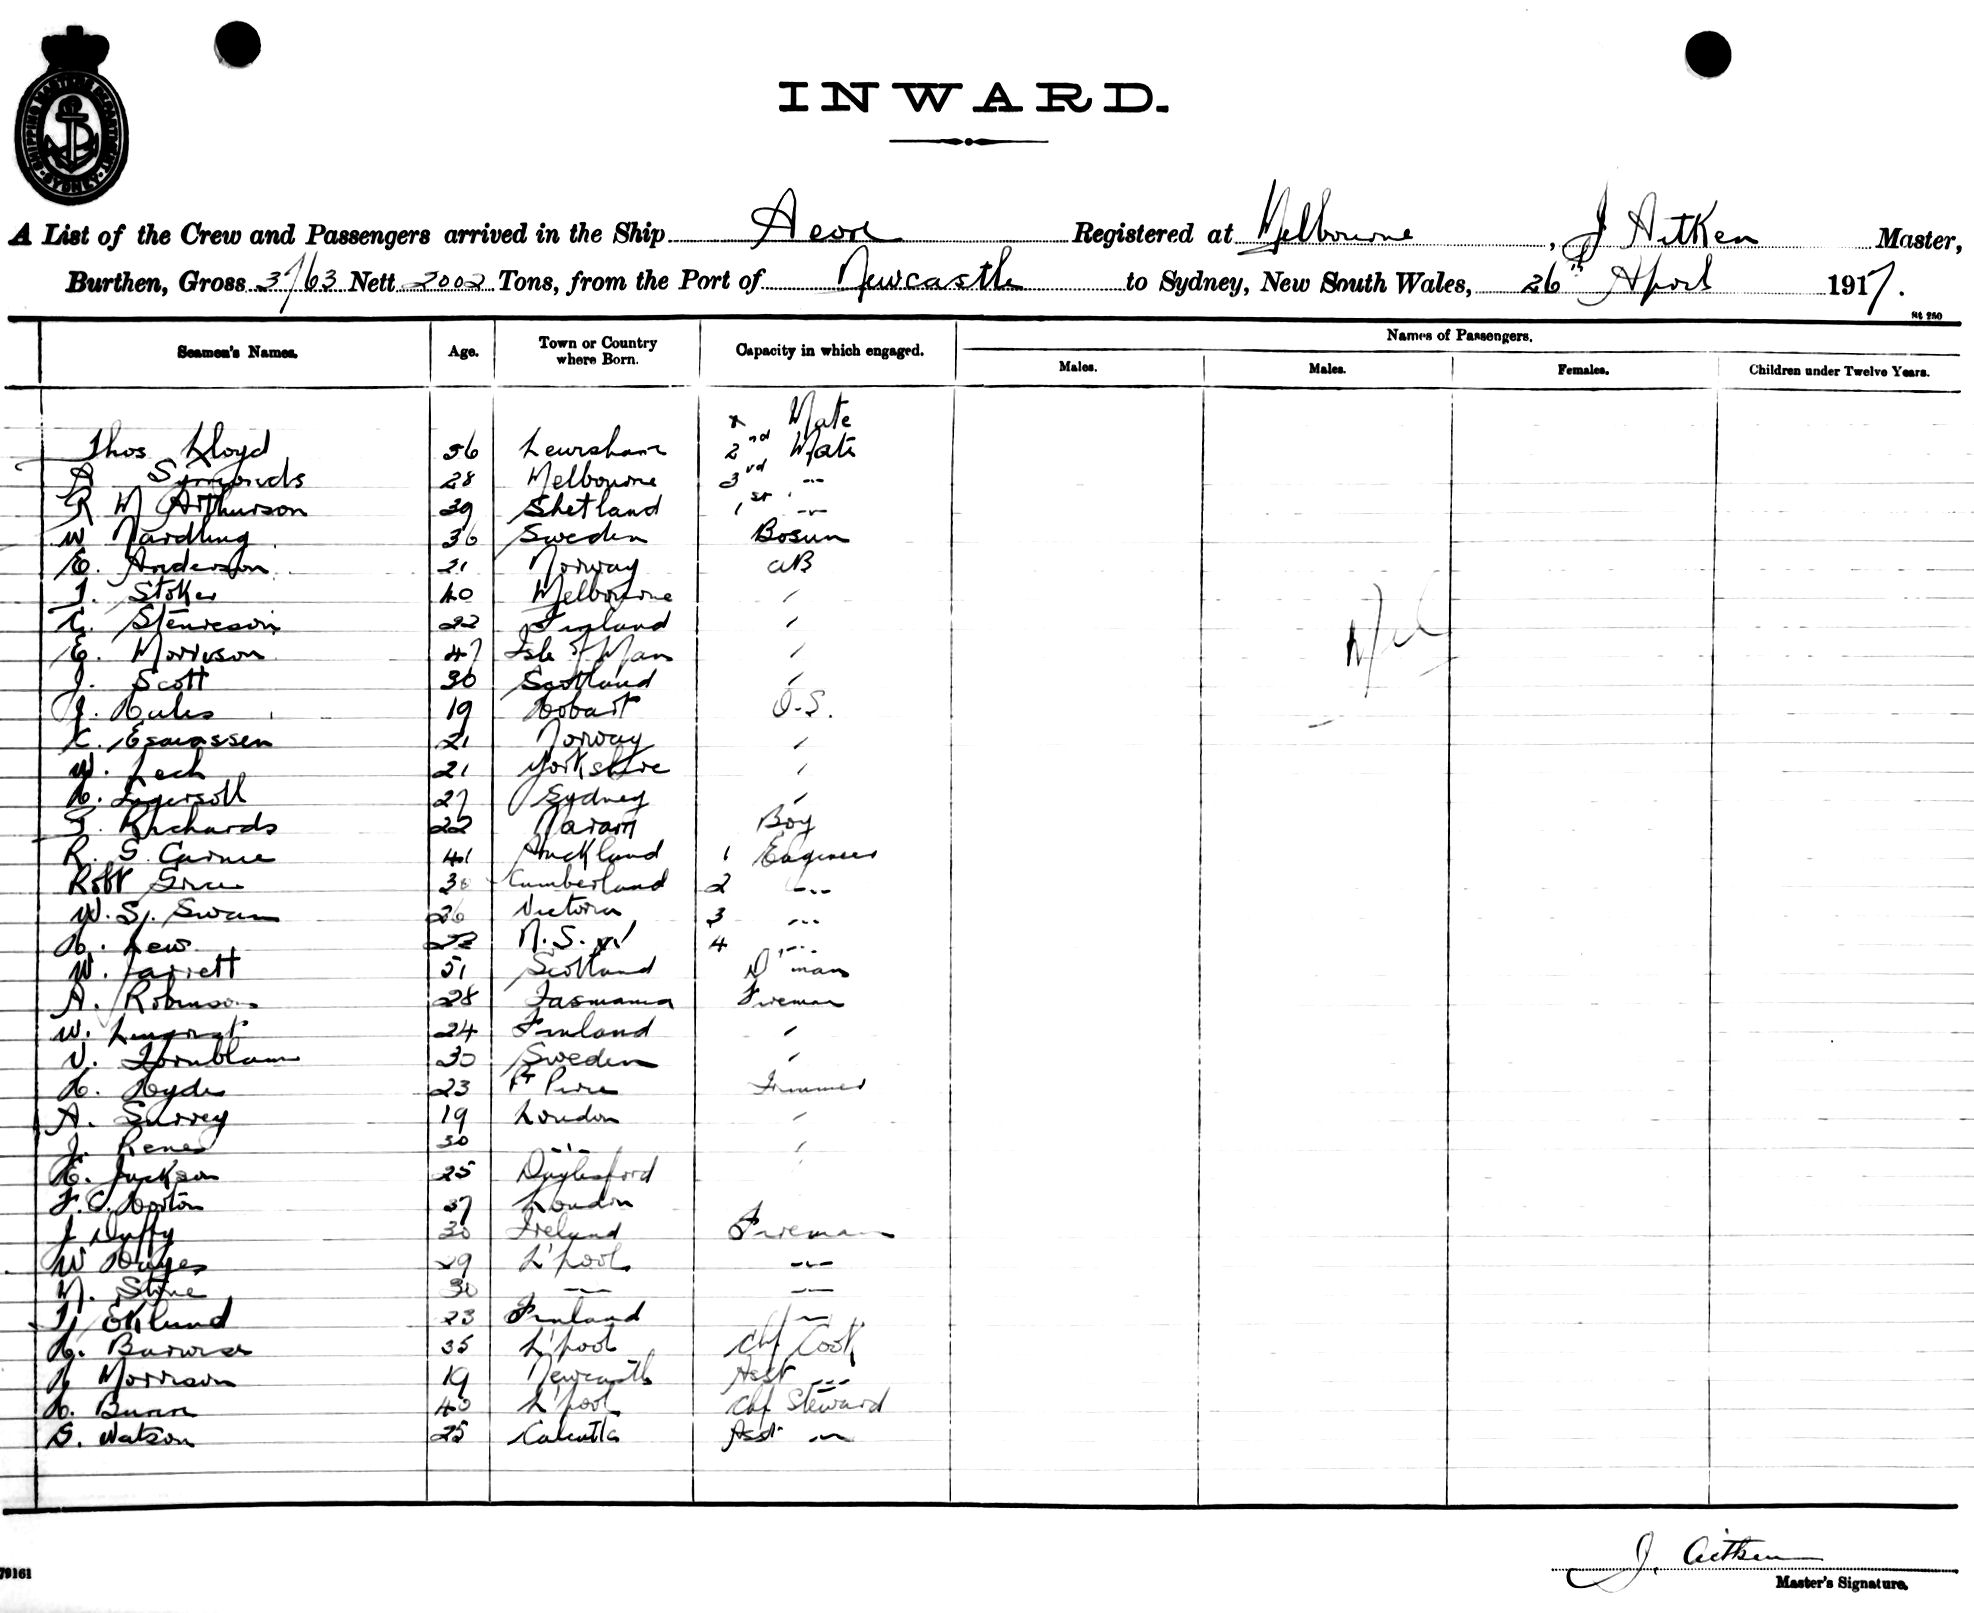 SHIPPING MASTERS DEPARTMENT
SYDNEY
INWARD.
A List of the Crew and Passengers arrived in the Ship Aeon Registered at Melbourne, J Aitken Master,
Burthen, Gross 3763 Nett 2002 Tons, from the Port of Newcastle to Sydney, New South Wales, 26th April 1917.
Seamen's Names. Age. Town or Country where Born. Capacity in which engaged. Names of Passengers.
Males. Males. Females. Children under Twelve Years.
x Mate
Thos Lloyd 56 Lewisham 2nd Mate
A Symonds 28 Melbourne 3rd -"-
R M Arthurson 39 Shetland 1st -"-
W 36 Sweden Bosun
E. Anderson 21 Norway AB
T. Stoker 40 Melbourne "
C. 22 Finland "
E. Morrison 47 Isle of Man "
J. Scott 30 Scotland "
J. Hales 19 Hobart O.S.
C. 21 Norway "
W. Lech 21 Yorkshire "
H. Ingersoll 27 Sydney "
T. Richards 22 Boy
R. S. Carnie 41 Auckland 1 Engineer
Robt 30 Cumberland 2 -"-
W. G. Swan 26 Victoria 3 -"-
H. Lew 22 N.S.W 4 -"-
W. Jarrett 51 Scotland D'man
A. Robinson 28 Tasmania Fireman
W. 24 Finland "
V. 30 Sweden "
H. Hyde 23 Pt Pirie Trimmer
A. Surrey 19 London "
J. 30 -"- "
H. Jackson 25 Daylesford
F. C. Horton 37 London
J Duffy 30 Ireland Fireman
W Hayes 29 L'pool -"-
M. Stone 30 -"- -"-
Eklund 23 Finland -"-
H. 35 L'pool Chf Cook
Morrison 19 Newcastle Asst -"-
H. Bunn 40 L'pool Chf Steward
S. Watson 25 Calcutta Asst -"-
Nil
J. Aitken
Master's Signature.
79161